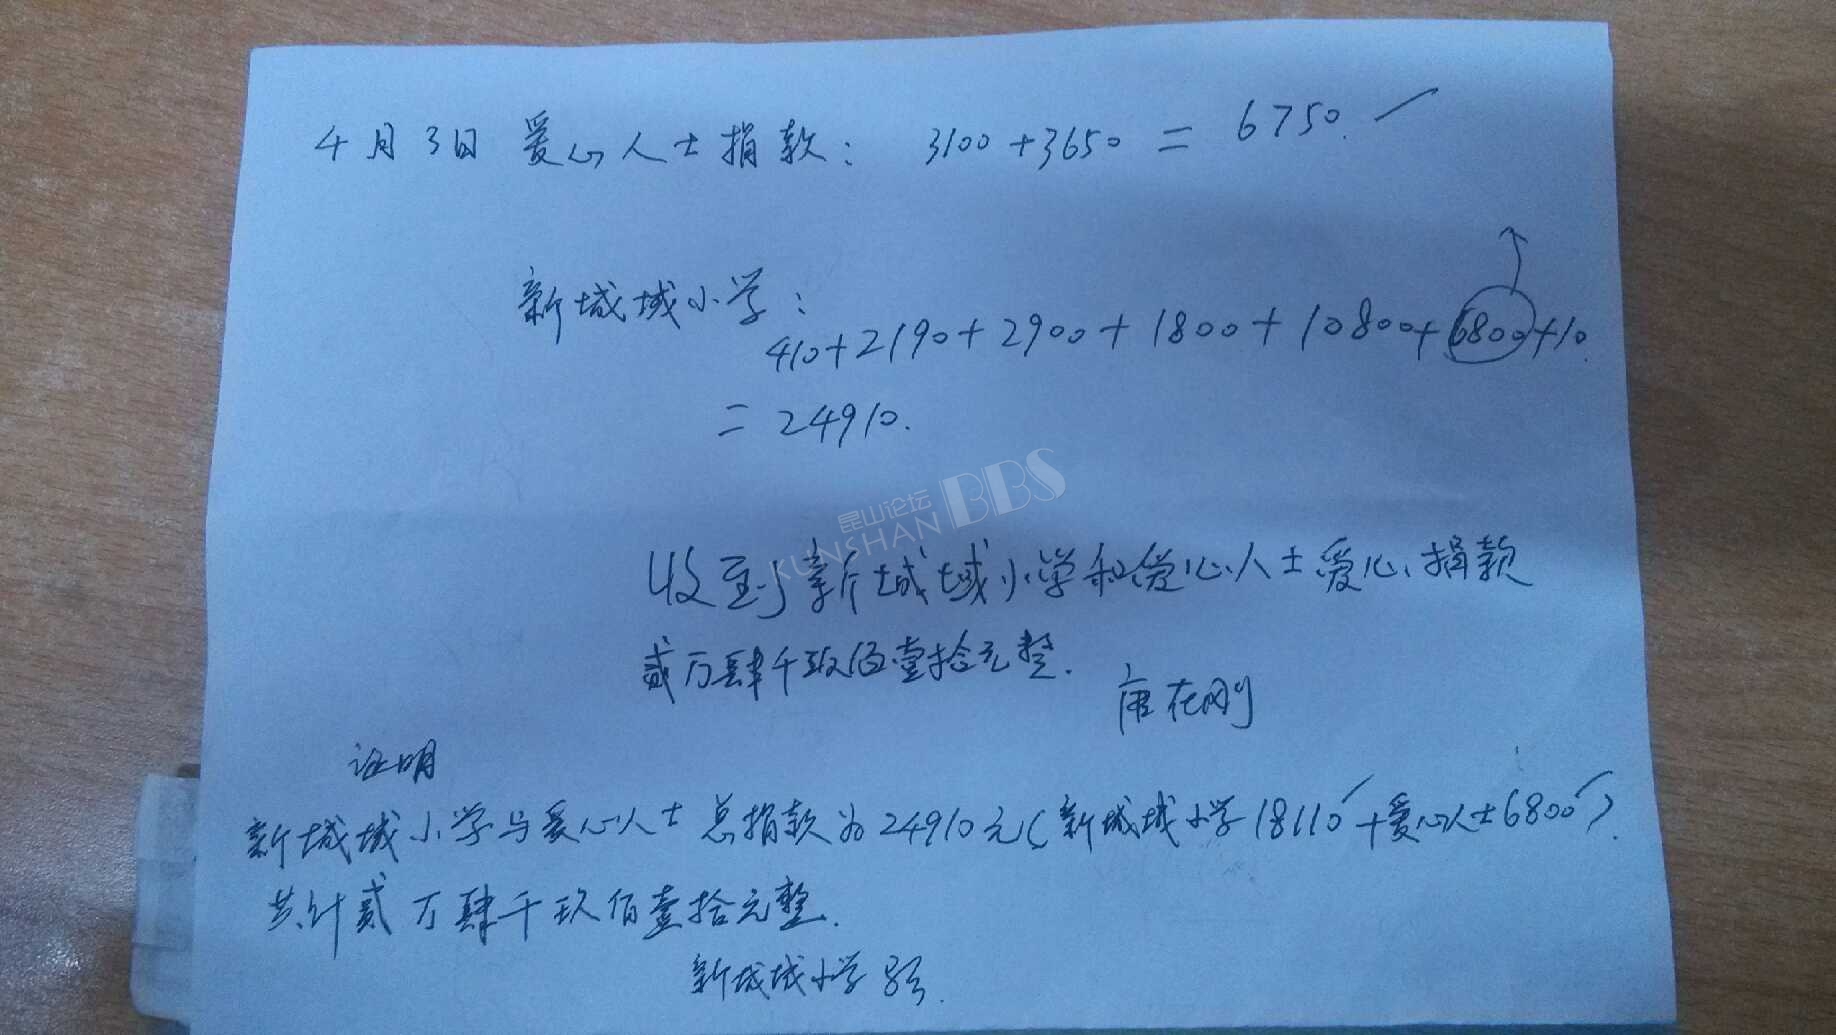 4月3日 爱心人士捐款： 3100+3650 = 6750.
新城域小学：
410+2190+2900+1800+10800+6800+10
= 24910.
昆山论坛 BBS
KUNSHAN
收到新城域小学和爱心人士爱心捐款
贰万肆千玖佰壹拾元整.
唐在刚
证明
新城域小学与爱心人士总捐款为24910元(新城域小学18110+爱心人士6800).
共计贰万肆千玖佰壹拾元整.
新城域小学